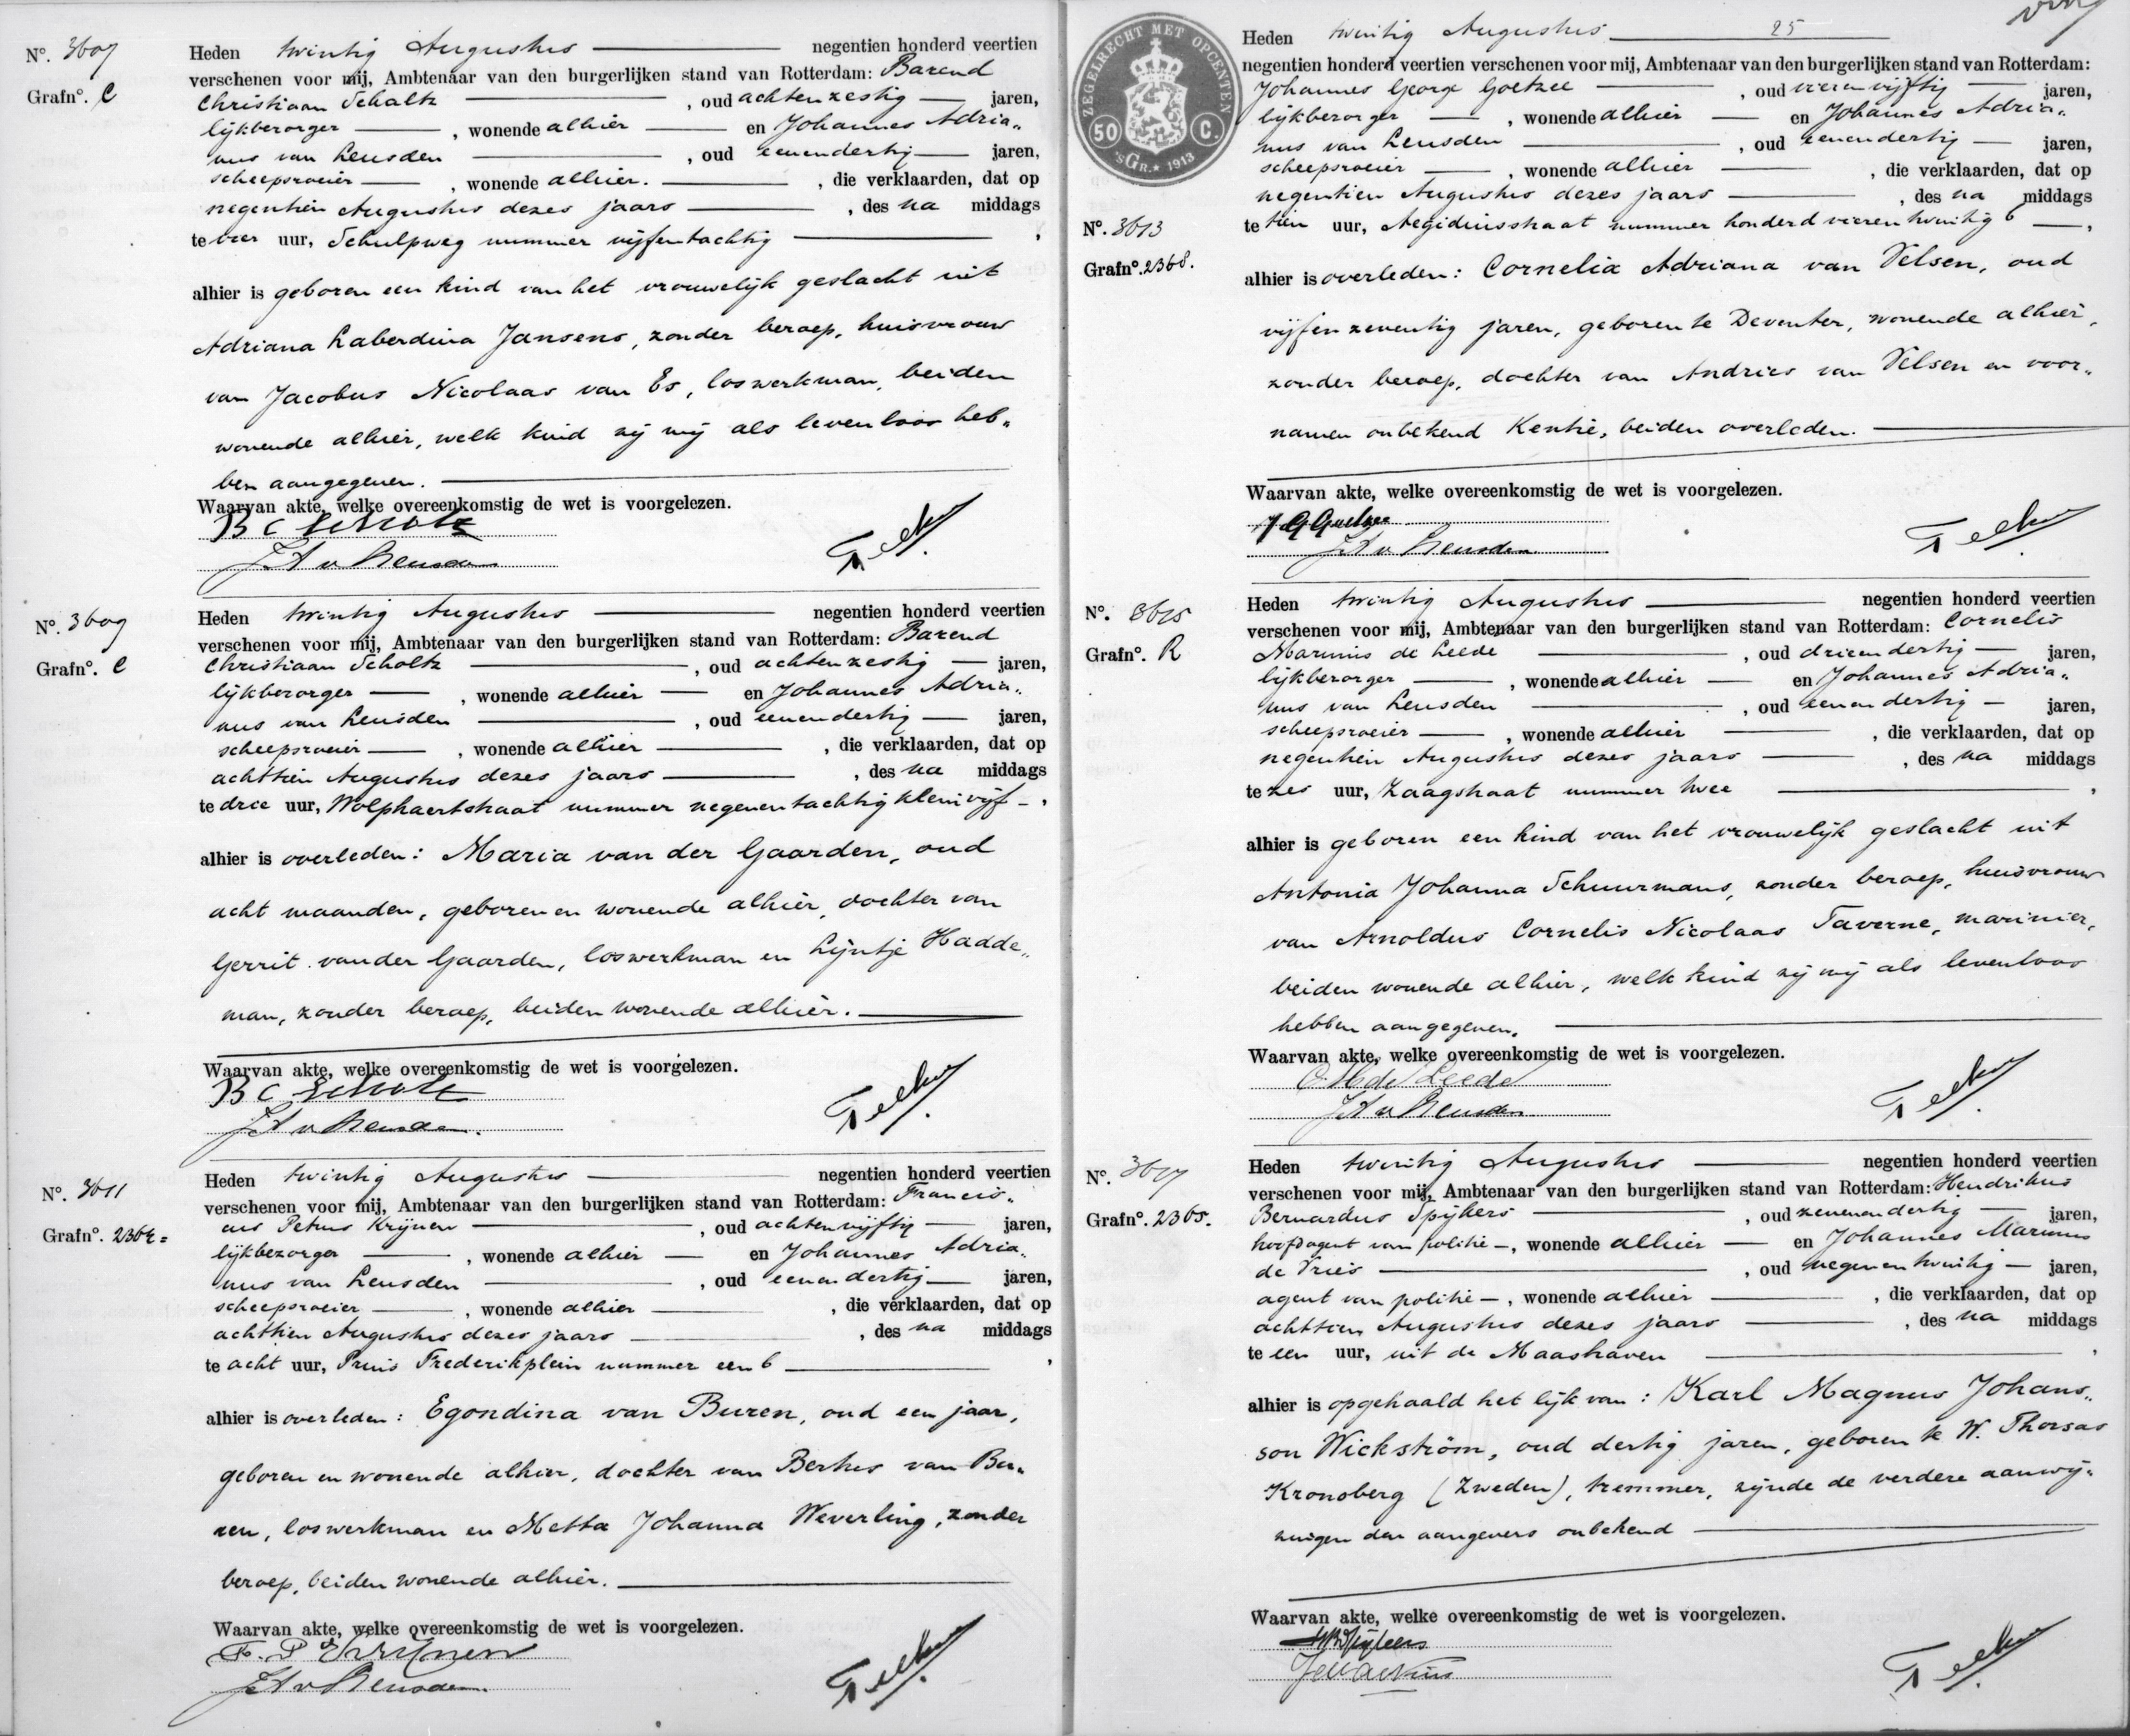 No. 3607
Grafno. C
Heden twintig Augustus negentien honderd veertien
verschenen voor mij, Ambtenaar van den burgerlijken stand van Rotterdam: Barend
Christiaan Scholtz , oud achtenzestig jaren,
lijkbezorger , wonende alhier en Johannes Adria„
nus van Leusden , oud eenendertig jaren,
scheepsroeier , wonende alhier. , die verklaarden, dat op
negentien Augustus dezes jaars , des na middags
te vier uur, Schulpweg nummer vijfentachtig ,
alhier is geboren een kind van het vrouwelijk geslacht uit
Adriana Laberdina Jansens, zonder beroep, huisvrouw
van Jacobus Nicolaas van Es, loswerkman, beiden
wonende alhier, welk kind zij mij als levenloos heb„
ben aangegeven.
Waarvan akte, welke overeenkomstig de wet is voorgelezen.
B C Scholtz
J A v Leusden
No. 3609
Grafno. C
Heden twintig Augustus negentien honderd veertien
verschenen voor mij, Ambtenaar van den burgerlijken stand van Rotterdam: Barend
Christiaan Scholtz , oud achtenzestig jaren,
lijkbezorger , wonende alhier en Johannes Adria„
nus van Leusden , oud eenendertig jaren,
scheepsroeier , wonende alhier , die verklaarden, dat op
achttien Augustus dezes jaars , des na middags
te drie uur, Wolphaertstraat nummer negenentachtig klein vijf ,
alhier is overleden: Maria van der Gaarden, oud
acht maanden, geboren en wonende alhier, dochter van
Gerrit van der Gaarden, loswerkman en Lijntje Hadde„
man, zonder beroep, beiden wonende alhier.
Waarvan akte, welke overeenkomstig de wet is voorgelezen.
B C Scholtz
J A v Leusden.
No. 3611
Grafno. 2364
Heden twintig Augustus negentien honderd veertien
verschenen voor mij, Ambtenaar van den burgerlijken stand van Rotterdam: Francis„
cus Petrus Krijnen , oud achtenvijftig jaren,
lijkbezorger , wonende alhier en Johannes Adria„
nus van Leusden , oud eenendertig jaren,
scheepsroeier , wonende alhier , die verklaarden, dat op
achttien Augustus dezes jaars , des na middags
te acht uur, Prins Frederikplein nummer een b ,
alhier is overleden: Egondina van Buren, oud een jaar,
geboren en wonende alhier, dochter van Bertus van Bu„
ren, loswerkman en Metta Johanna Weverling, zonder
beroep, beiden wonende alhier.
Waarvan akte, welke overeenkomstig de wet is voorgelezen.
F. P Krijnen
J A v Leusden.
ZEGELRECHT MET OPCENTEN
50 C.
'sGR. 1913
No. 3613
Grafno. 2368.
Heden twintig Augustus 25
negentien honderd veertien verschenen voor mij, Ambtenaar van den burgerlijken stand van Rotterdam:
Johannes George Goetzee , oud vierenvijftig jaren,
lijkbezorger , wonende alhier en Johannes Adria„
nus van Leusden , oud eenendertig jaren,
scheepsroeier , wonende alhier , die verklaarden, dat op
negentien Augustus dezes jaars , des na middags
te tien uur, Aegidiusstraat nummer honderd vierentwintig b ,
alhier is overleden: Cornelia Adriana van Velsen, oud
vijfenzeventig jaren, geboren te Deventer, wonende alhier,
zonder beroep, dochter van Andries van Velsen en voor„
namen onbekend Kentie, beiden overleden.
Waarvan akte, welke overeenkomstig de wet is voorgelezen.
J G Goetzee
J A v Leusden.
No. 3615
Grafno. R
Heden twintig Augustus negentien honderd veertien
verschenen voor mij, Ambtenaar van den burgerlijken stand van Rotterdam: Cornelis
Marinus de Leede , oud drieendertig jaren,
lijkbezorger , wonende alhier en Johannes Adria„
nus van Leusden , oud eenendertig jaren,
scheepsroeier , wonende alhier , die verklaarden, dat op
negentien Augustus dezes jaars , des na middags
te zes uur, Zaagstraat nummer twee ,
alhier is geboren een kind van het vrouwelijk geslacht uit
Antonia Johanna Schuurmans, zonder beroep, huisvrouw
van Arnoldus Cornelis Nicolaas Taverne, marinier,
beiden wonende alhier, welk kind zij mij als levenloos
hebben aangegeven.
Waarvan akte, welke overeenkomstig de wet is voorgelezen.
C. M de Leede
J A v Leusden
No. 3617
Grafno. 2365.
Heden twintig Augustus negentien honderd veertien
verschenen voor mij, Ambtenaar van den burgerlijken stand van Rotterdam: Hendrikus
Bernardus Spijkers , oud zevenendertig jaren,
hoofdagent van politie , wonende alhier en Johannes Marinus
de Vries , oud negenentwintig jaren,
agent van politie , wonende alhier , die verklaarden, dat op
achttien Augustus dezes jaars , des na middags
te een uur, uit de Maashaven ,
alhier is opgehaald het lijk van: Karl Magnus Johans„
son Wickström, oud dertig jaren, geboren te W. Thorsas
Kronoberg (Zweden), tremmer, zijnde de verdere aanwij„
zingen den aangevers onbekend
Waarvan akte, welke overeenkomstig de wet is voorgelezen.
HB Spijkers
J M de Vries